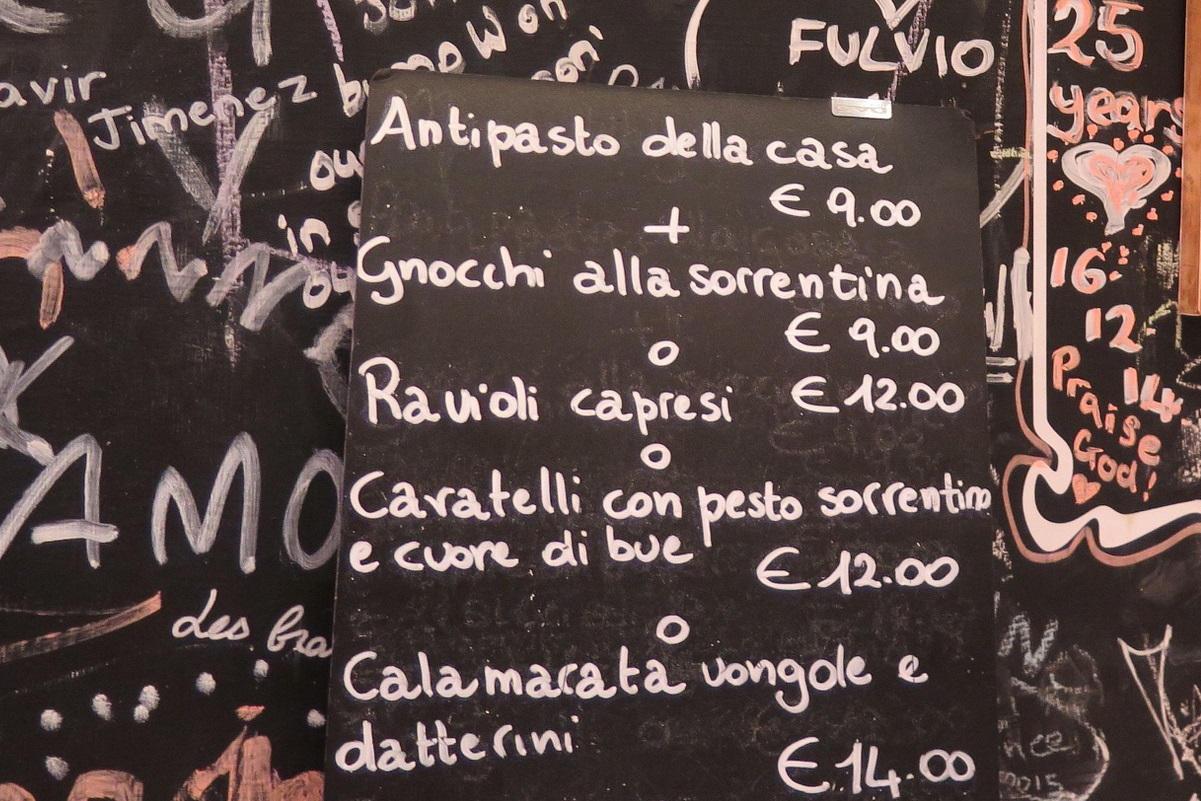 Antipasto della casa
€ 9.00
+
Gnocchi alla sorrentina
€ 9.00
o
Ravioli capresi € 12.00
o
Cavatelli con pesto sorrentino
e cuore di bue € 12.00
o
Calamarata vongole e
datterini
€ 14.00
FULVIO
avir
Jimenez
in
AMO
des
25
years
16
12
14
Praise
God!